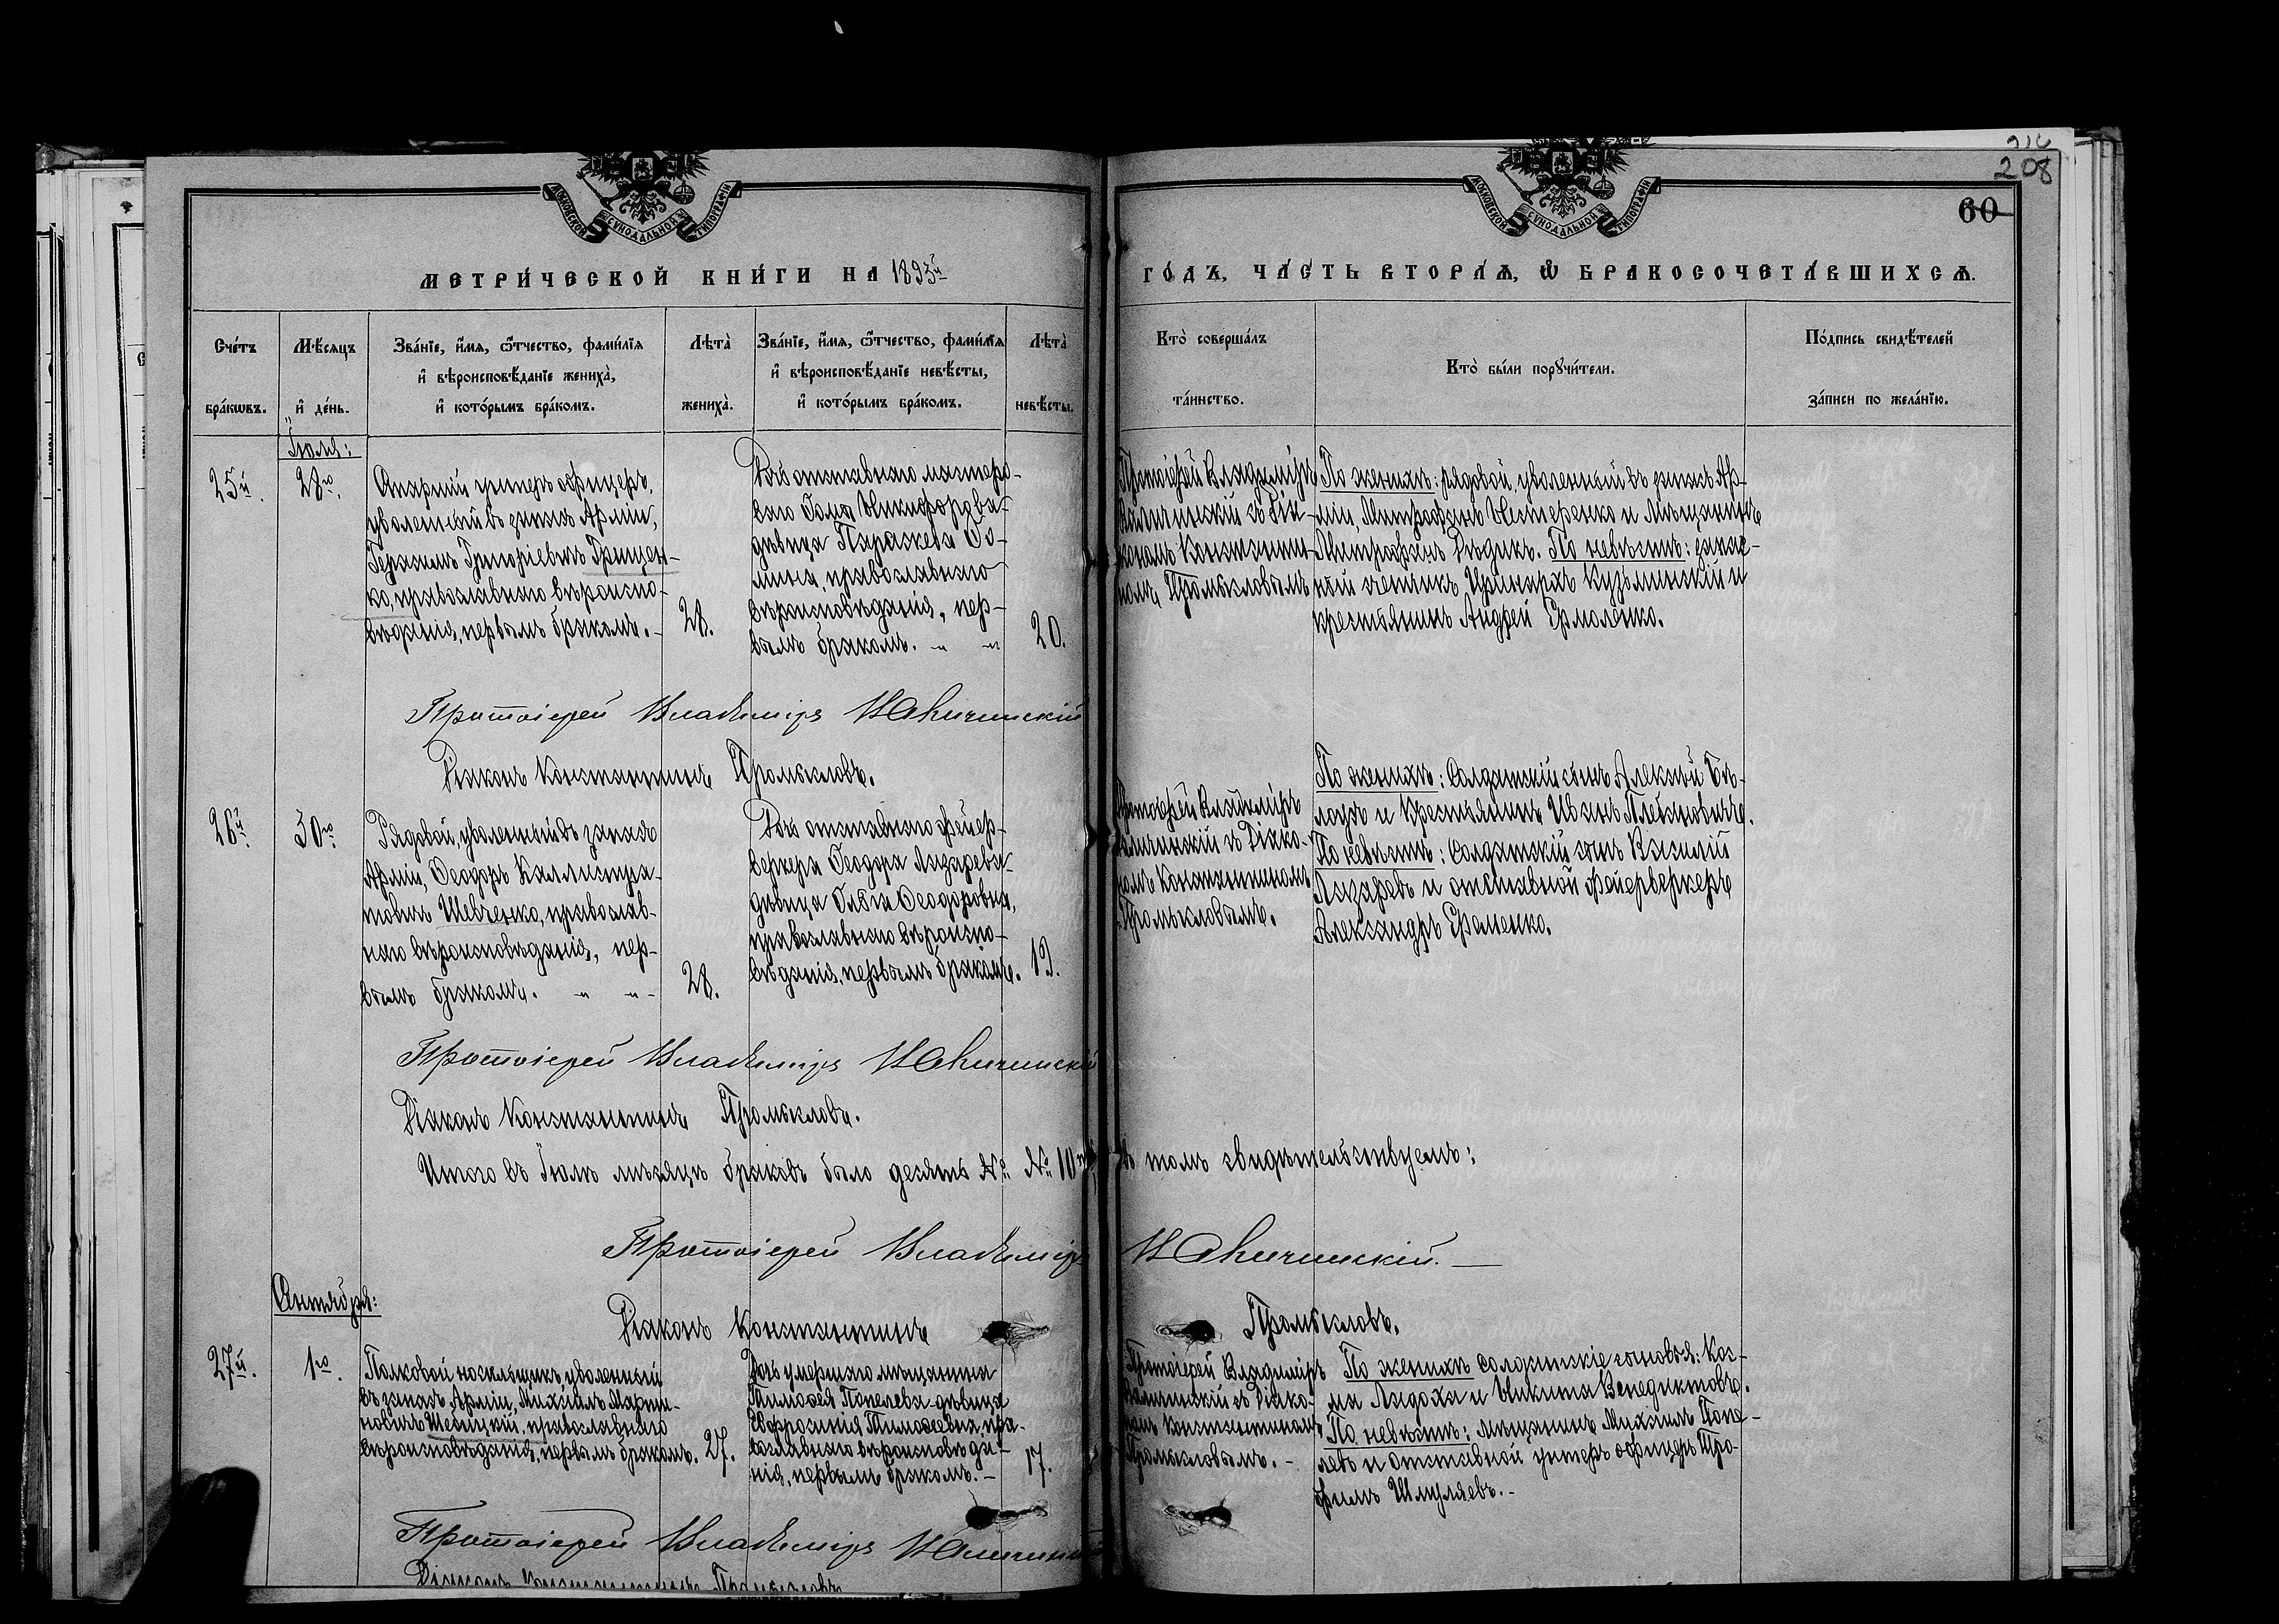 208
60
МОСКОВСКОЙ СѴНОДАЛЬНОЙ ТИПОГРАФІИ
МОСКОВСКОЙ СѴНОДАЛЬНОЙ ТИПОГРАФІИ
МЕТРИ́ЧЕСКОЙ КНИ́ГИ НА 1893й
ГО́ДЪ, ЧА́СТЬ ВТОРА́Я, Ѿ БРАКОСОЧЕТА́ВШИХСЯ.
Сче́тъ
бра́кѡвъ.
Мѣ́сяцъ
и҆ де́нь.
Зва́нїе, и҆́мя, ѻ҆́тчество, фами́лїя
и҆ вѣроисповѣ́данїе жениха̀,
и҆ кото́рымъ бра́комъ.
Лѣта̀
жениха̀.
Зва́нїе, и҆́мя, ѻ҆́тчество, фами́лїя
и҆ вѣроисповѣ́данїе невѣ́сты,
и҆ кото́рымъ бра́комъ.
Лѣта̀
невѣ́сты.
Кто̀ соверша́лъ
та́инство.
Кто̀ бы́ли порꙋчи́тели.
По́дпись свидѣ́телей
за́писи по жела́нїю.
Іюля:
25й.
28го.
Старшій унтеръ офицеръ,
уволенный въ запасъ Арміи,
Герасимъ Григоріевичъ Грицен-
ко, православнаго вѣроиспо-
вѣданія, первымъ бракомъ.
28.
Дочь отставнаго мастеро-
ваго Фомы Никифорова
дѣвица Параскева Фо-
мина, православнаго
вѣроисповѣданія, пер-
вымъ бракомъ.
20.
Протоіерей Владиміръ
съ Діа-
кономъ Константи-
номъ Громыкловымъ
По женихѣ: рядовой, уволенный въ запасъ Ар-
міи, Митрофанъ Нестеренко и Мѣщанинъ
Митрофанъ Дѣдикъ. По невѣстѣ: запас-
ной Иринархъ Кузьминскій и
крестьянинъ Андрей Ермоленко.
Протоіерей Владиміръ
Діаконъ Константинъ Громыкловъ.
26й.
30го.
Рядовой, уволенный въ запасъ
Арміи, Ѳеодоръ Каллистра-
товичъ Шевченко, православ-
наго вѣроисповѣданія, пер-
вымъ бракомъ.
28.
Дочь отставнаго фейер-
веркера Ѳеодора Лазарева
дѣвица Ольга Ѳеодоровна,
православнаго вѣроиспо-
вѣданія, первымъ бракомъ.
19.
Протоіерей Владиміръ
съ Діако-
номъ Константиномъ
Громыкловымъ.
По женихѣ: Солдатскій сынъ Алексѣй Бѣ-
лоусъ и крестьянинъ Иванъ
По невѣстѣ: Солдатскій сынъ Василій
Лазаревъ и отставной фейерверкеръ
Александръ Еременко.
Протоіерей Владиміръ
Діаконъ Константинъ Громыкловъ.
Итого въ Іюлѣ мѣсяцѣ браковъ было десять № № 10 въ томъ свидѣтельствуемъ:
Протоіерей Владиміръ
Діаконъ Константинъ Громыкловъ.
Октября:
27й.
1го.
Полковой носильщикъ, уволенный
въ запасъ Арміи, Михаилъ Марти-
новичъ православнаго
вѣроисповѣданія, первымъ бракомъ.
27.
Дочь умершаго мѣщанина
Тимоѳея Попелева дѣвица
Евфросинія Тимоѳеевна, пра-
вославнаго вѣроисповѣда-
нія, первымъ бракомъ.
17.
Протоіерей Владиміръ
съ Діако-
номъ Константиномъ
Громыкловымъ.
По женихѣ солдатскіе сыновья: Коз-
ма и Никита Венедиктовъ.
По невѣстѣ: мѣщанинъ Михаилъ Попе-
левъ и отставной унтеръ офицеръ Тро-
фимъ Шмуляевъ.
Протоіерей Владиміръ
Діаконъ Константинъ Громыкловъ